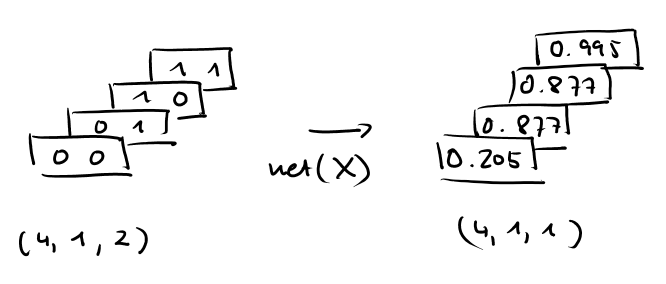 1 1
1 0
0 1
0 0
net(X)
0.995
0.877
0.877
0.205
(4, 1, 2)
(4, 1, 1)